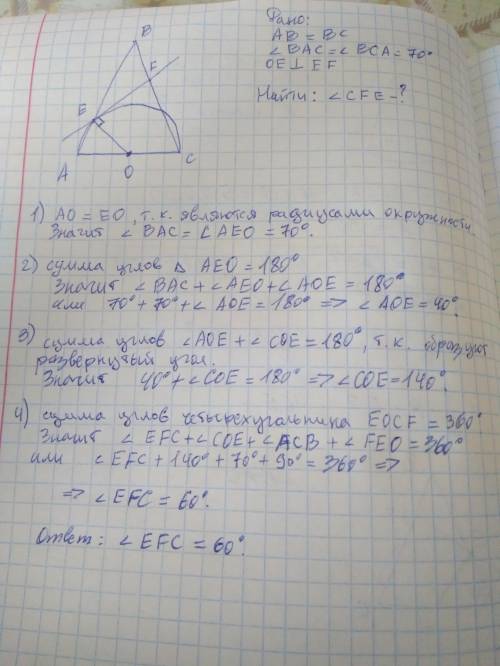 B
F
E
A
O
C
Дано:
AB = BC
∠BAC = ∠BCA = 70°
OE ⊥ EF
Найти: ∠CFE - ?
1) AO = EO, т.к. являются радиусами окружности.
Значит ∠BAC = ∠AEO = 70°.
2) сумма углов △ AEO = 180°
Значит ∠BAC + ∠AEO + ∠AOE = 180°
или 70° + 70° + ∠AOE = 180° => ∠AOE = 40°.
3) сумма углов ∠AOE + ∠COE = 180°, т.к. образуют
развернутый угол.
Значит 40° + ∠COE = 180° => ∠COE = 140°.
4) сумма углов четырехугольника EOCF = 360°
Значит ∠EFC + ∠COE + ∠ACB + ∠FEO = 360°
или ∠EFC + 140° + 70° + 90° = 360° =>
=> ∠EFC = 60°.
Ответ: ∠EFC = 60°.